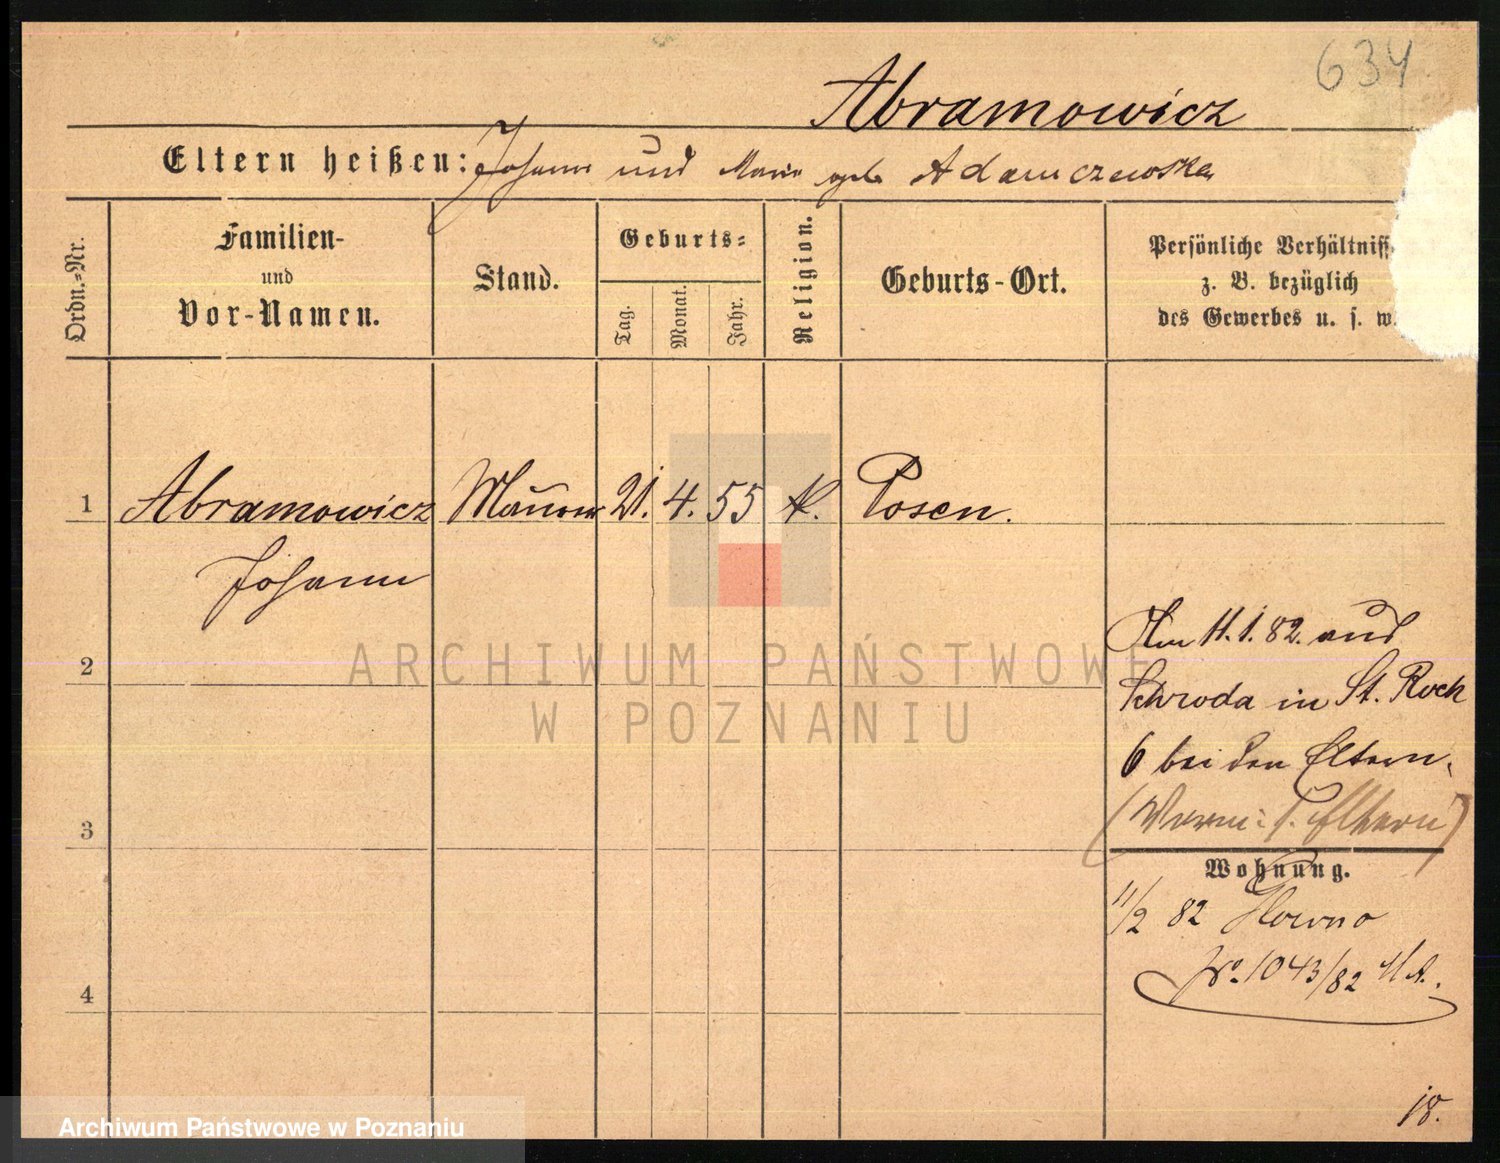 634
Abramowicz
Eltern heißen: Johann und Marie geb Adamczewska
Ordn.=Nr.
Familien-
und
Vor-Namen.
Stand.
Geburts=
Tag.
Monat.
Jahr.
Religion.
Geburts-Ort.
Persönliche Verhältniss
z. B. bezüglich
des Gewerbes u. s. w.
1 Abramowicz Maurer 21. 4. 55 K. Posen.
Johann
2
3
4
Am 11.1.82. aus
Schroda in St. Roch
6 bei den Eltern.
Eltern)
Wohnung.
11/2 82 Glowno
No. 1043/82
18.
ARCHIWUM PAŃSTWOWE
W POZNANIU
Archiwum Państwowe w Poznaniu